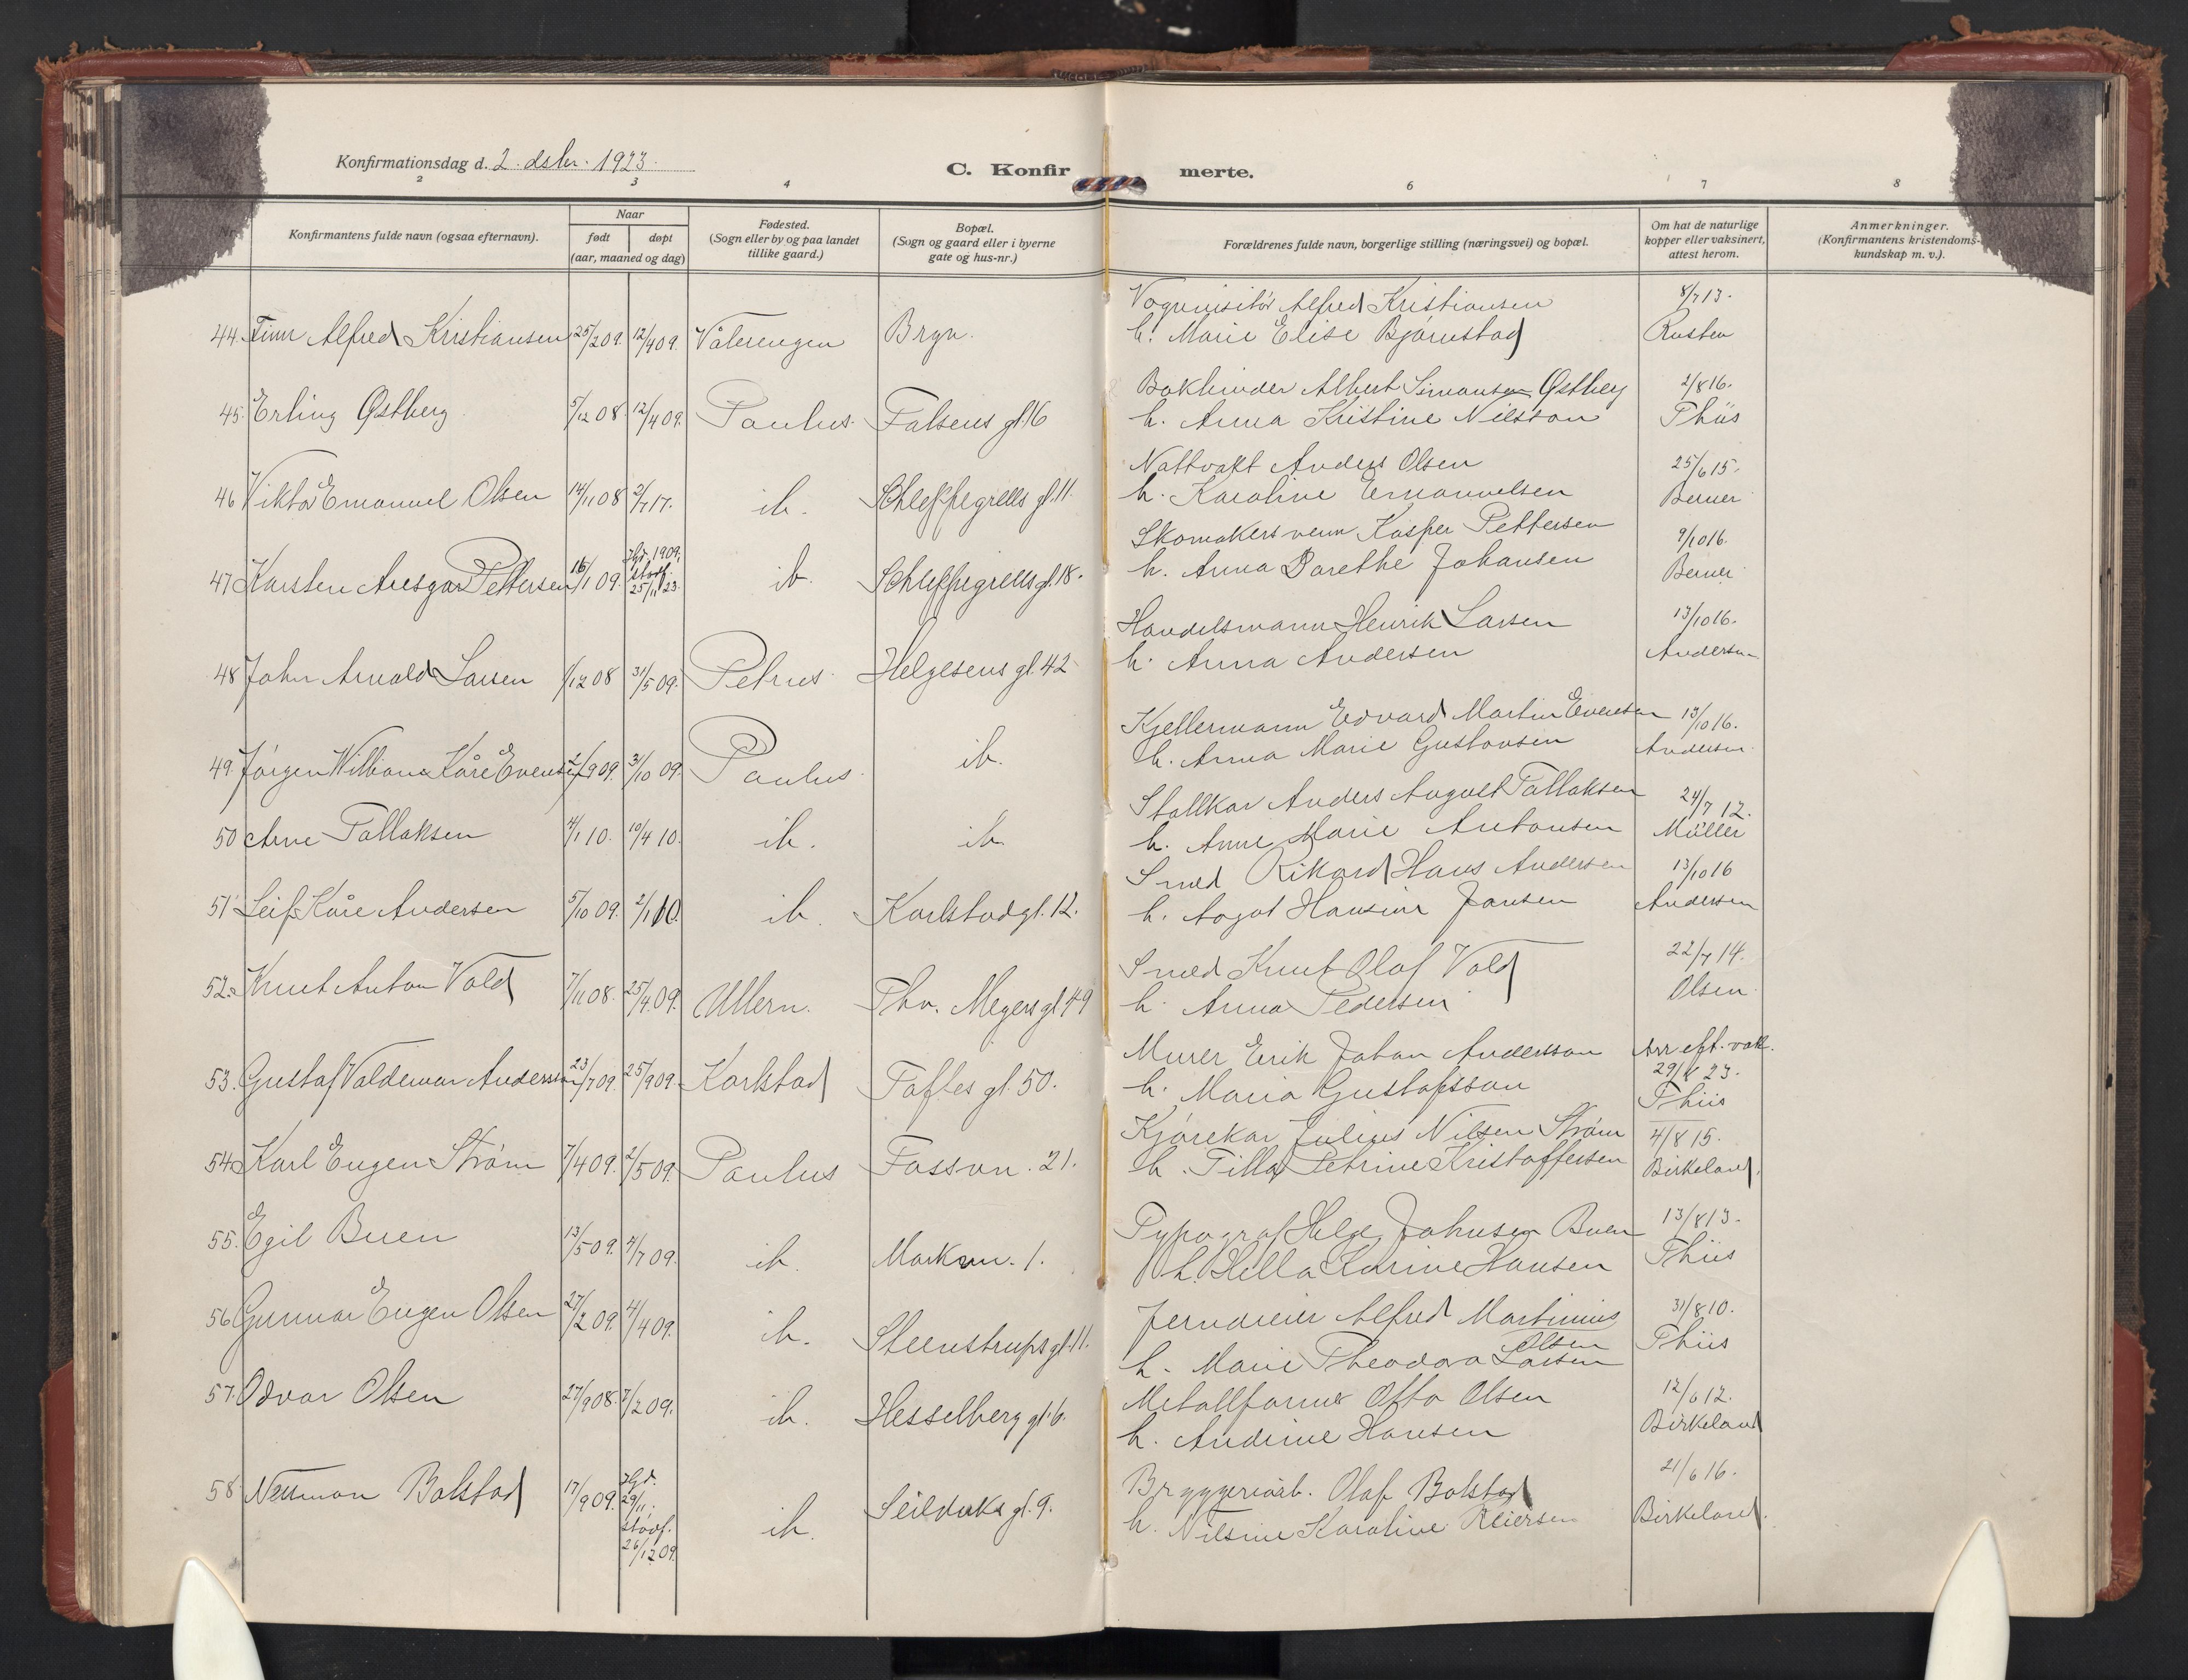 Konfirmationsdag d. 2. dsbr. 1923.
C. Konfir merte.
2 3 4 6 7 8
Konfirmantens fulde navn (ogsaa efternavn).
Naar
født døpt
(aar, maaned og dag)
Fødested.
(Sogn eller by og paa landet
tillike gaard.)
Bopæl.
(Sogn og gaard eller i byerne
gate og hus-nr.)
Forældrenes fulde navn, borgerlige stilling (næringsvei) og bopæl.
Om hat de naturlige
kopper eller vaksinert,
attest herom.
Anmerkninger.
(Konfirmantens kristendoms-
kundskap m. v.).
Vognvisitør Alfred Kristiansen 8/7 13.
44. Finn Alfred Kristiansen 25/2 09. 12/4 09. Vålerengen Bryn. h. Marie Elise Bjørnstad Rusten
Bokbinder Albert Simonsen Østberg 2/8 16.
45. Erling Østberg 5/12 08. 12/4 09. Paulus. Falsens gt. 16 h. Anna Kristine Nilsson Thiis
Nattvakt Anders Olsen 25/6 15.
46 Viktor Emanuel Olsen 14/11 08 2/7 17. ib. Schleppegrells gt. 11. h. Karoline Emanuelsen Berner
Skomakersvenn Kasper Pettersen 9/10 16.
47 Karsten Ansgar Pettersen 16/1 09. Hjd. 1909. stadf. 25/11 23. ib. Schleppegrells gt. 18. h. Anna Dorethe Johansen Berner
Handelsmann Henrik Larsen 13/10 16.
48 John Arnold Larsen 1/12 08 31/5 09. Petrus. Helgesens gt. 42 h. Anna Andersen Andersen
Kjellermann Edvard Martin Evensen 13/10 16.
49. Jørgen William Kåre Evensen 2/9 09. 3/10 09. Paulus. ib. h. Anna Marie Gustavsen Andersen.
Stallkar Anders August Tallaksen 24/7 12.
50 Arne Tallaksen 4/1 10. 10/4 10. ib. ib. h. Anne Marie Antonsen Müller
Smed Rikard Hans Andersen 13/10 16
51 Leif Kåre Andersen 5/10 09. 2/1 10. ib. Karlstadgt. 12. h. Aagot Hansine Jansen Andersen
Smed Knut Olaf Vold 22/7 14.
52. Knut Anton Vold 7/11 08. 25/4 09. Ullern. Thv. Meyers gt 49 h. Anna Pedersen Olsen
Murer Erik Johan Andersson Arr eft. vak.
53. Gustaf Valdemar Andersson 23/7 09. 25/9 09. Karlstad Toftes gt. 50. h. Maria Gustafsson 29/ 23. Thiis
Kjørekar Julius Nilsen Strøm 4/8 15.
54. Karl Eugen Strøm 7/4 09. 2/5 09. Paulus Fossvn. 21. h. Tilla Petrine Kristoffersen Birkeland.
Typograf Helge Johnsen Buen 13/8 13.
55. Egil Buen 13/5 09. 4/7 09. ib. Markvn. 1. h. Hella Karine Hansen Thiis
Jernarbeier Alfred Martinius Olsen 31/8 10.
56 Gunnar Eugen Olsen 27/2 09. 4/4 09. ib. Steenstrups gt. 11. h. Marie Theodora Larsen Thiis
Metallformer Otto Olsen 12/6 12.
57. Odvar Olsen 27/9 08. 7/2 09. ib. Hesselberg gt. 6. h. Andrine Hansen Birkeland
Bryggeriarb. Olaf Bolstad 21/6 16.
58. Norman Bolstad 17/9 09. Hjd. 29/11. stadf. 26/12 09. ib. Seilduks gt. 9. h. Nilsine Karoline Reiersen Birkeland.